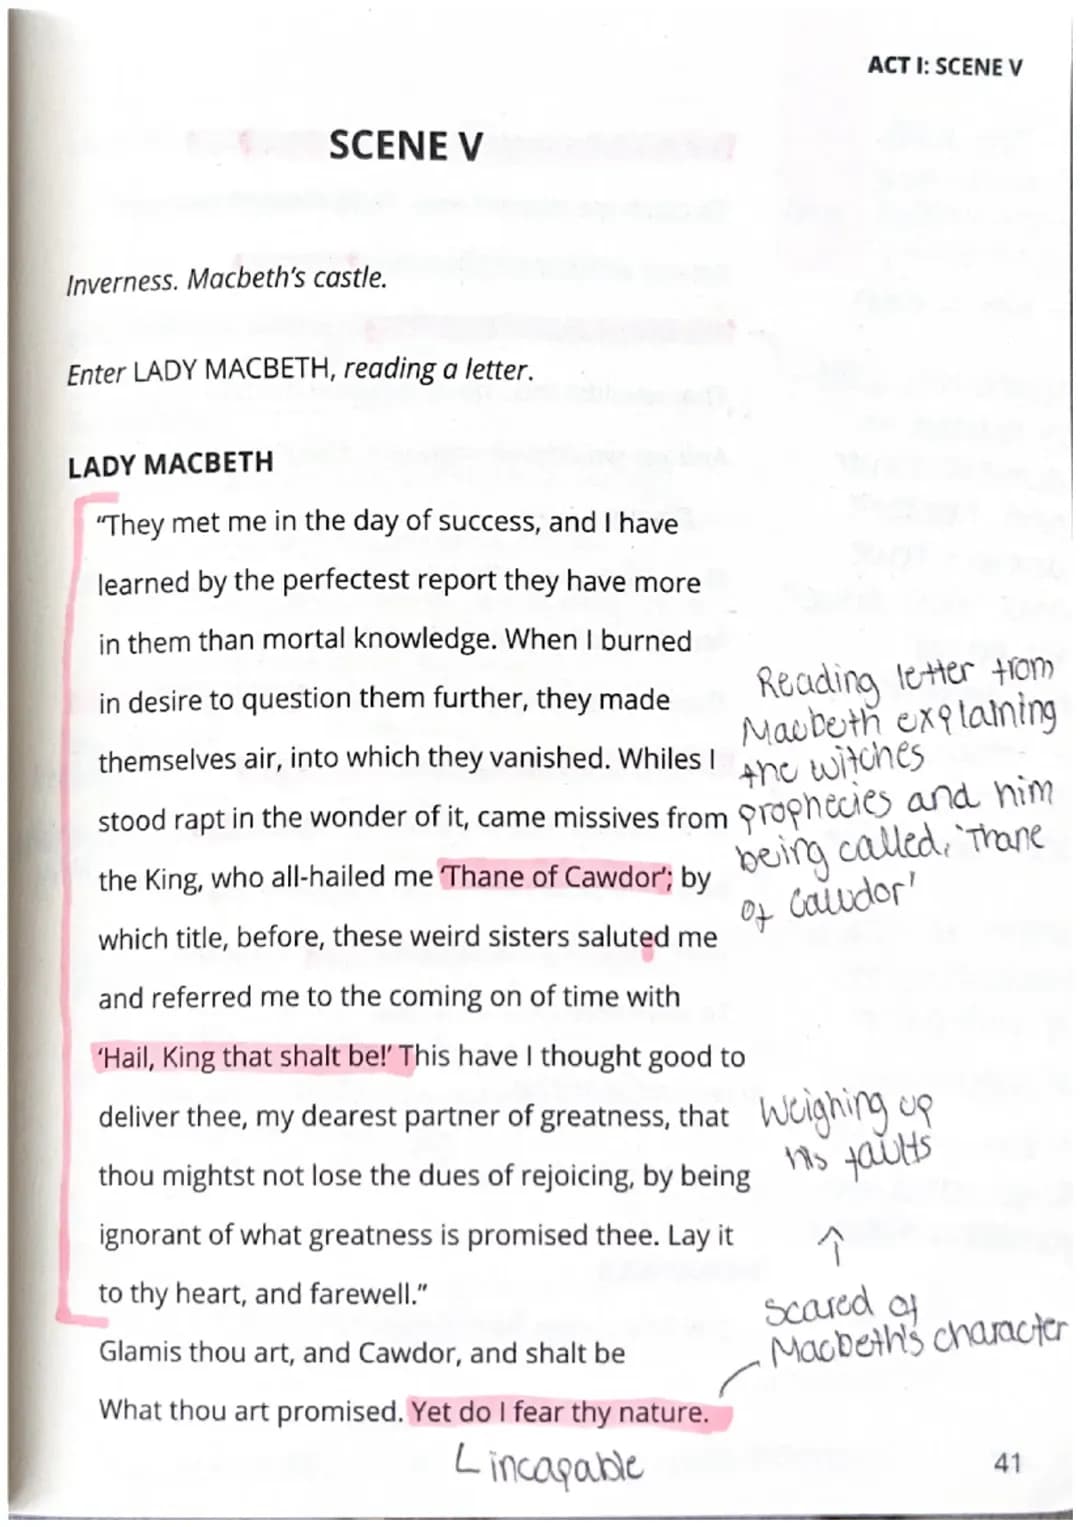 ACT I: SCENE V
SCENE V
Inverness. Macbeth's castle.
Enter LADY MACBETH, reading a letter.
LADY MACBETH
“They met me in the day of success, and I have
learned by the perfectest report they have more
in them than mortal knowledge. When I burned
in desire to question them further, they made
themselves air, into which they vanished. Whiles I
stood rapt in the wonder of it, came missives from
the King, who all-hailed me ‘Thane of Cawdor’; by
which title, before, these weird sisters saluted me
and referred me to the coming on of time with
‘Hail, King that shalt be!’ This have I thought good to
deliver thee, my dearest partner of greatness, that
thou mightst not lose the dues of rejoicing, by being
ignorant of what greatness is promised thee. Lay it
to thy heart, and farewell.”
Glamis thou art, and Cawdor, and shalt be
What thou art promised. Yet do I fear thy nature.
Reading letter from
Macbeth explaining
the witches
prophecies and him
being called, 'Thane
of Cawdor'
Weighing up
his faults
↑
scared of
Macbeth's character
incapable
41